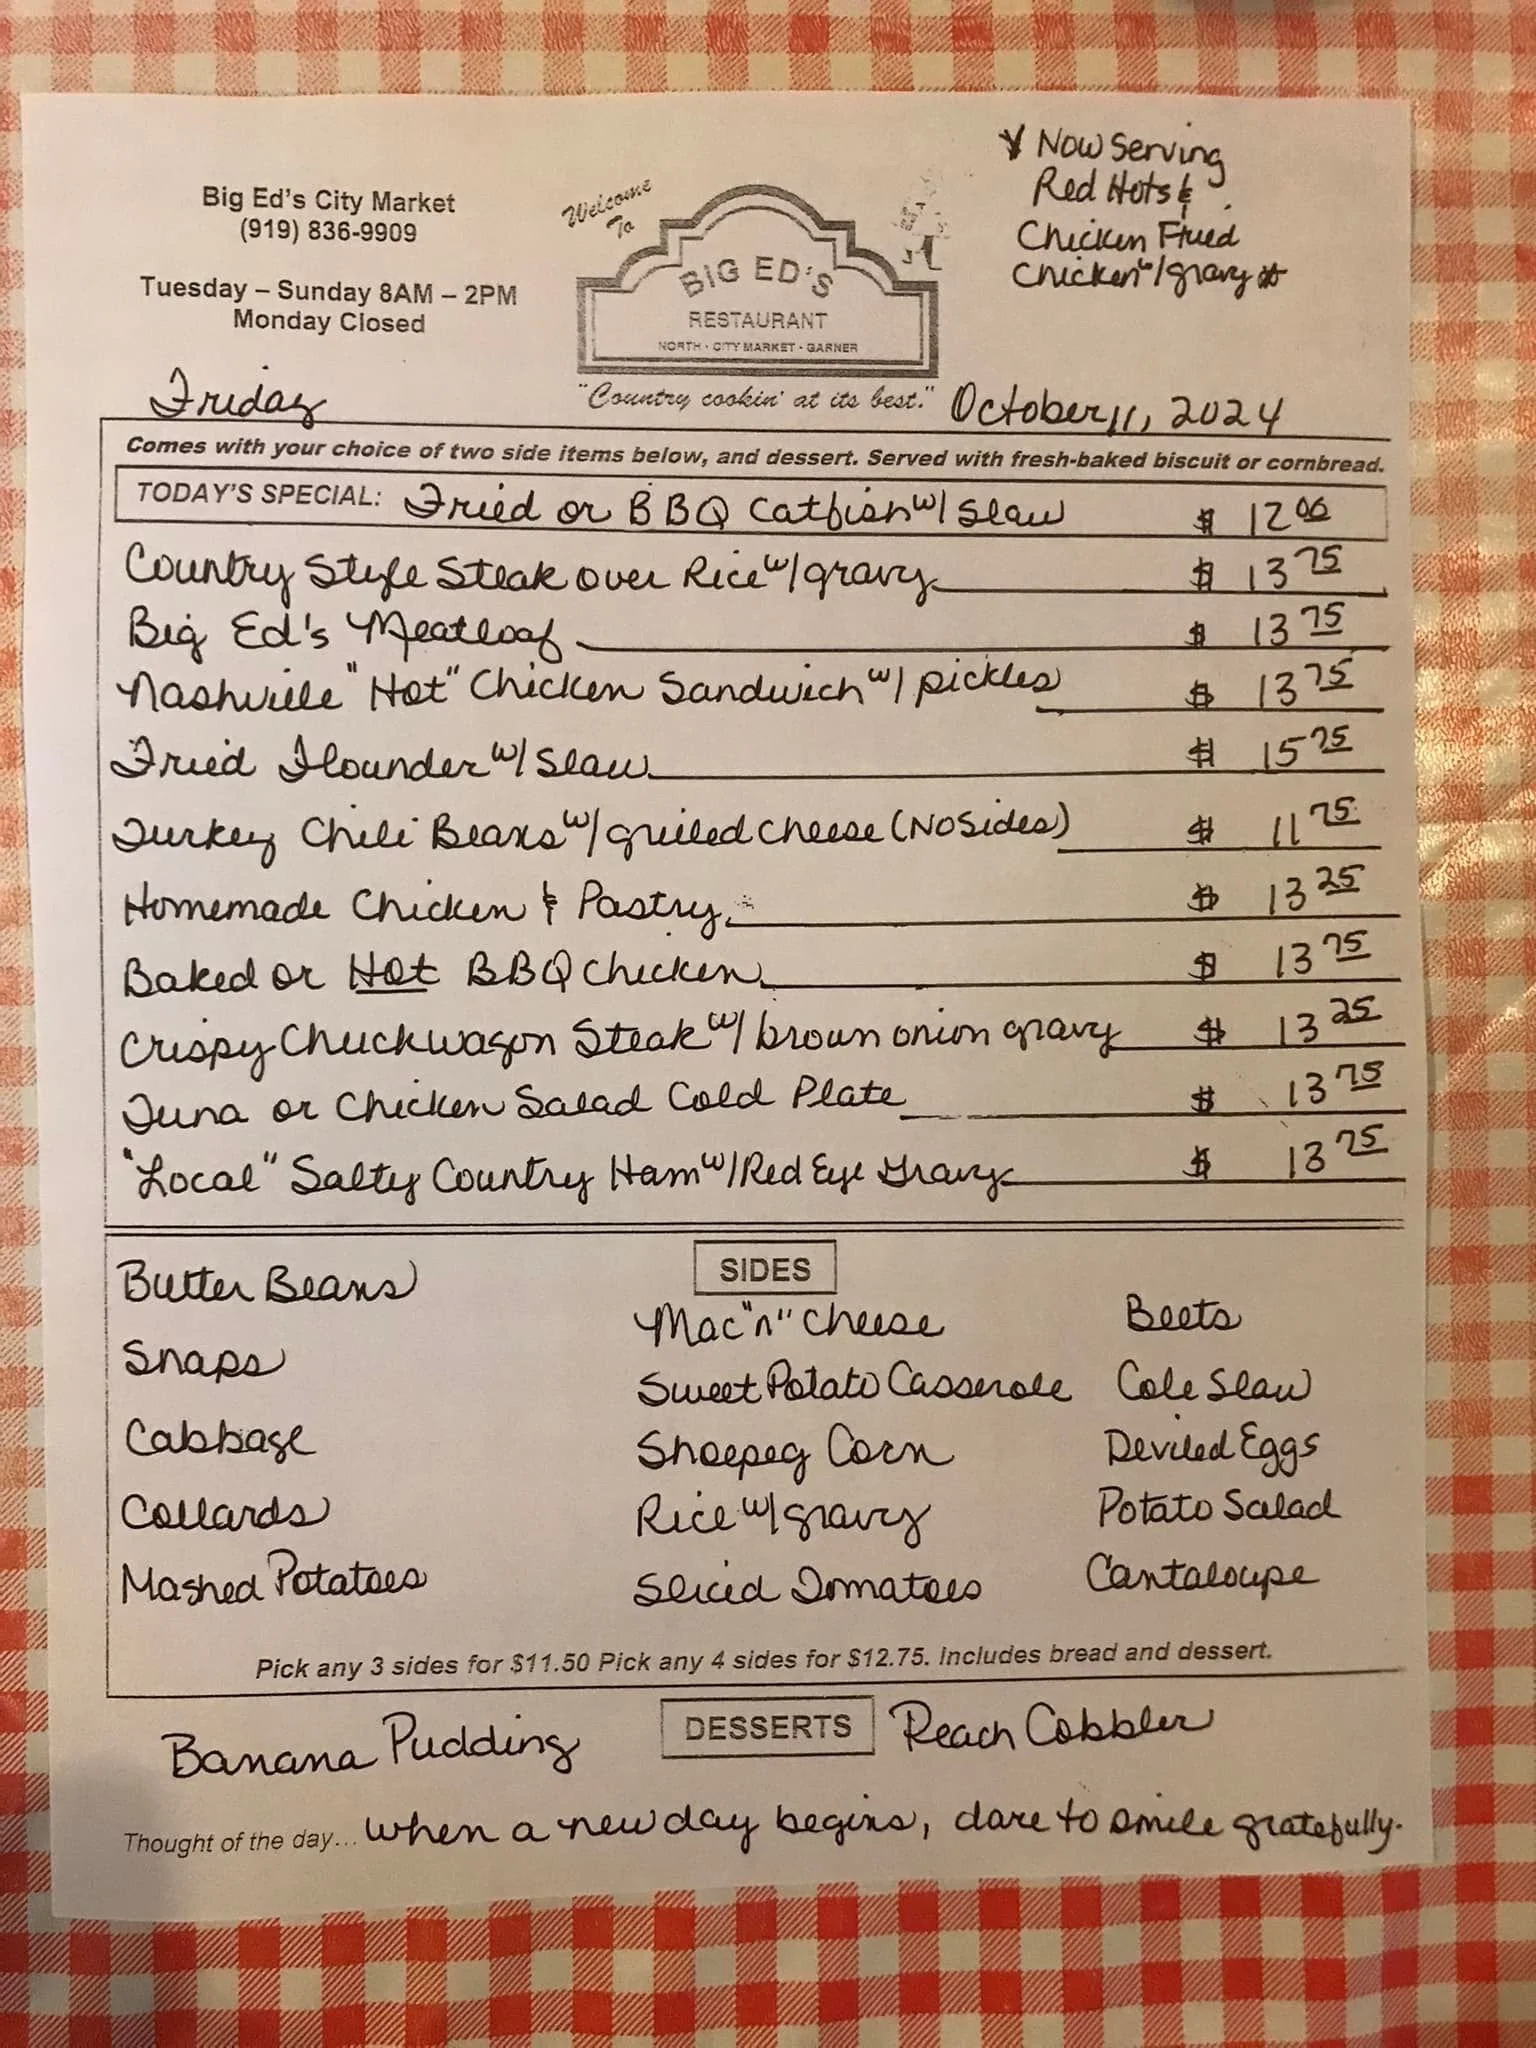 Big Ed's City Market
(919) 836-9909
Tuesday – Sunday 8AM – 2PM
Monday Closed
Welcome
To
BIG ED'S
RESTAURANT
NORTH · CITY MARKET · GARNER
"Country cookin' at its best."
Now Serving
Red Hots &
Chicken Fried
Chicken w/gravy
Friday
October 11, 2024
Comes with your choice of two side items below, and dessert. Served with fresh-baked biscuit or cornbread.
TODAY'S SPECIAL: Fried or BBQ Catfish w/ Slaw $ 12 00
Country Style Steak over Rice w/gravy $ 13 75
Big Ed's Meatloaf $ 13 75
Nashville "Hot" Chicken Sandwich w/ pickles $ 13 75
Fried Flounder w/ Slaw $ 15 75
Turkey Chili Beans w/ grilled cheese (No Sides) $ 11 75
Homemade Chicken & Pastry $ 13 25
Baked or Hot BBQ Chicken $ 13 75
Crispy Chuckwagon Steak w/ brown onion gravy $ 13 25
Tuna or Chicken Salad Cold Plate $ 13 75
"Local" Salty Country Ham w/ Red Eye Gravy $ 13 75
SIDES
Butter Beans
Snaps
Cabbage
Collards
Mashed Potatoes
Mac "n" Cheese
Sweet Potato Casserole
Shoepeg Corn
Rice w/ gravy
Sliced Tomatoes
Beets
Cole Slaw
Deviled Eggs
Potato Salad
Cantaloupe
Pick any 3 sides for $11.50 Pick any 4 sides for $12.75. Includes bread and dessert.
DESSERTS
Banana Pudding
Peach Cobbler
Thought of the day... When a new day begins, dare to smile gratefully.